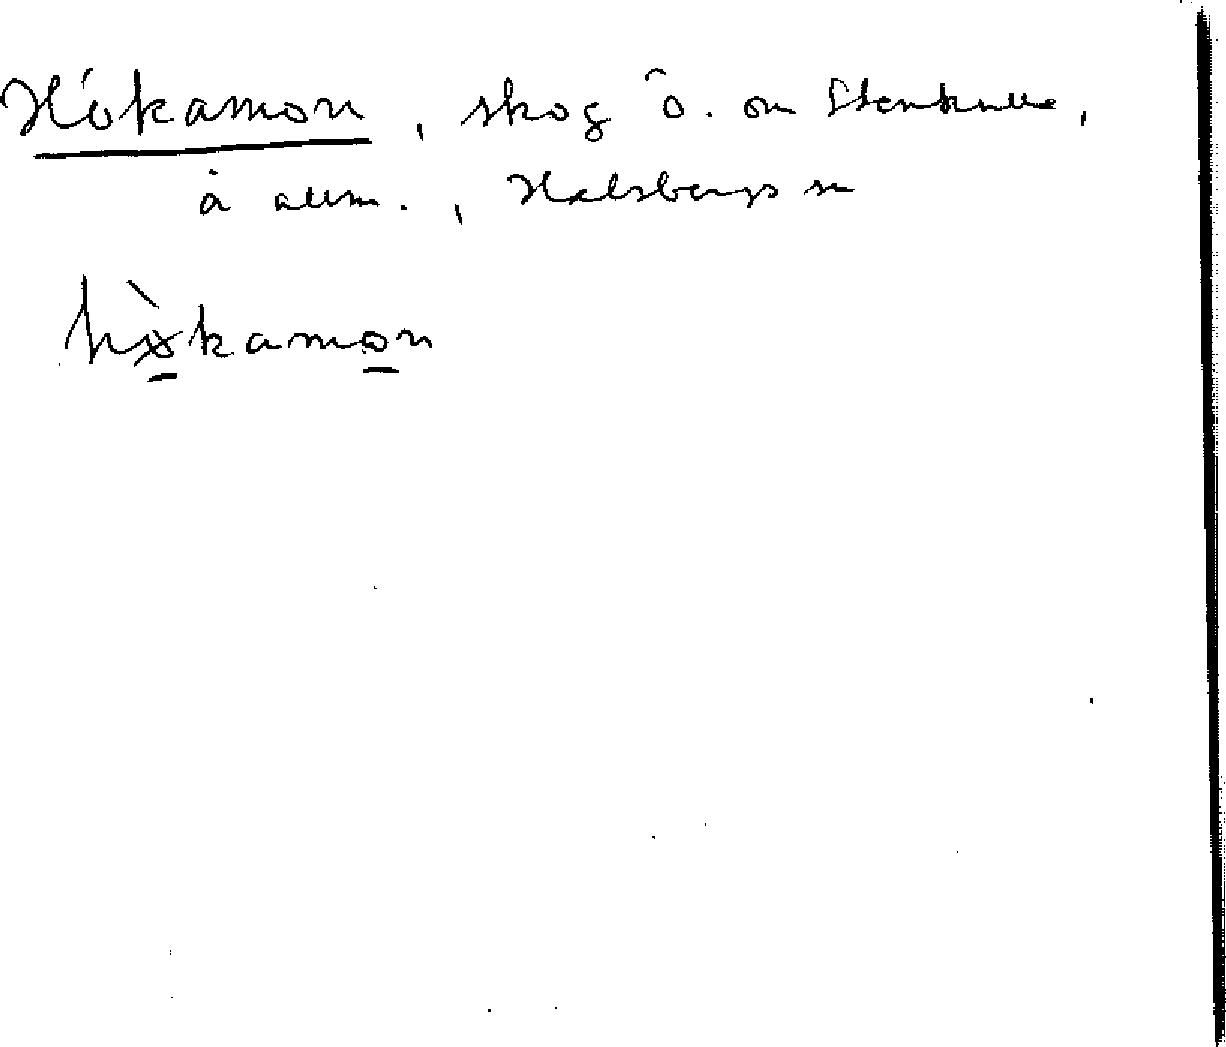 Hökamon, skog ö. om Stenkulle,
å allm., Halsbergs sn
hökamon